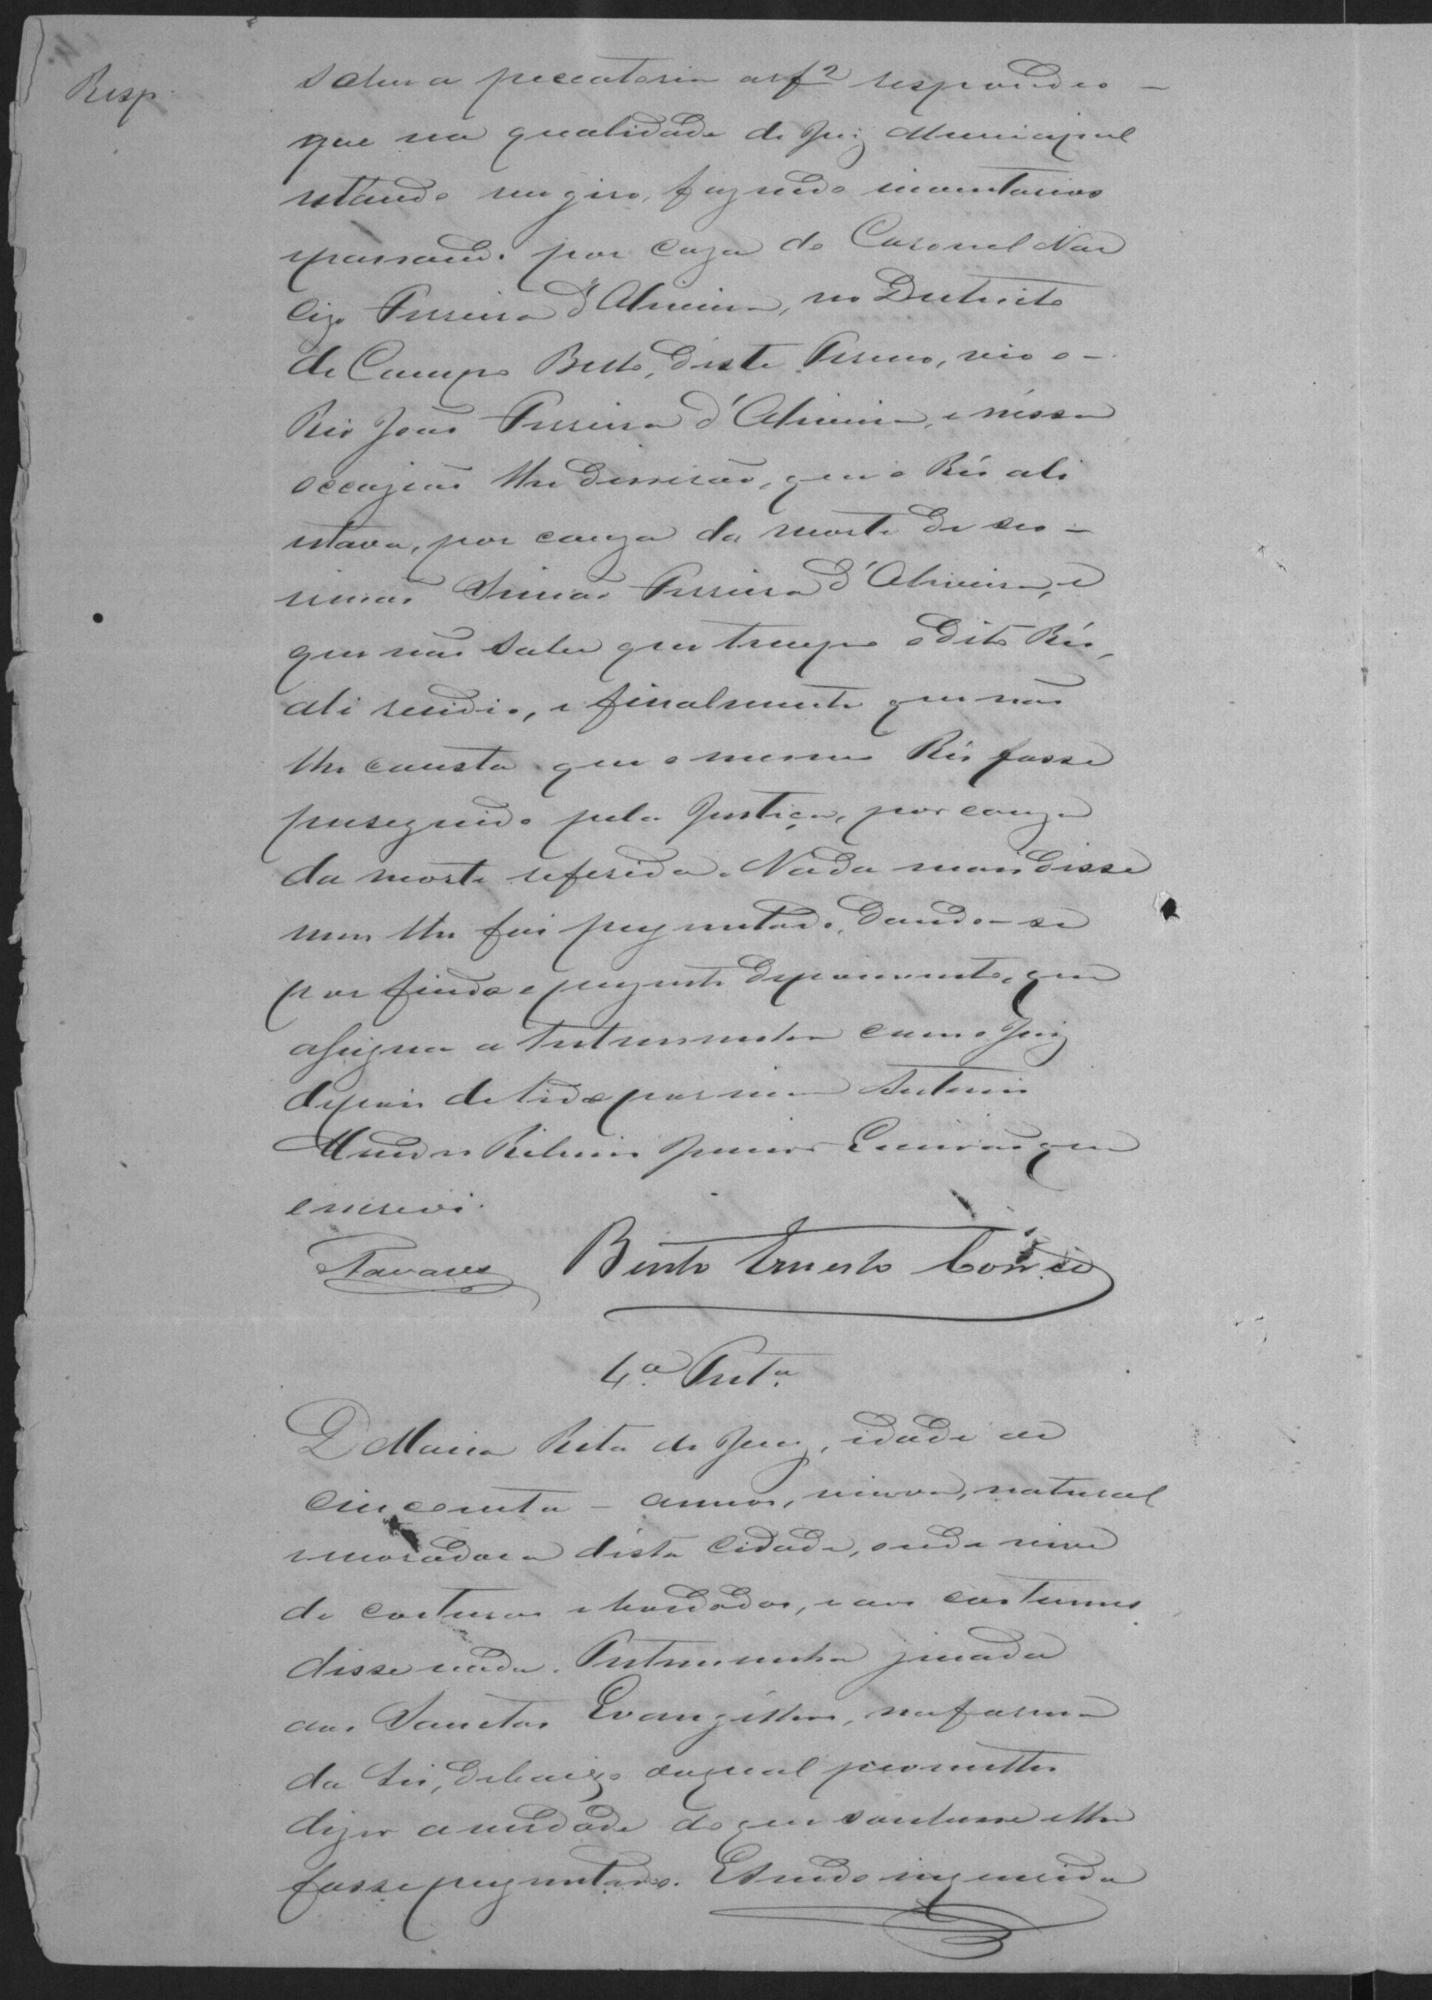 Resp.
sobre a precatoria as f 2 respondeo -
que na qualidade de Juiz Municipal
estando em giro, fazendo inventarios
e passando por caza do Coronel Nar
cizo Ferreira d'Oliveira, no Districto
de Campo Bello, deste Termo, vio o -
Réo João Ferreira d'Oliveira, e néssa
occazião lhe disserão, que o Réo ali
estava, por cauza da morte de seo -
irmão Simão Ferreira d'Oliveira, e
que não sabe que tempo o dito Réo,
ali rezidio, e finalmente que não
lhe consta que o mesmo Réo fosse
perseguido pela Justiça, por cauza
da morte referida. Nada mais disse
nem lhe foi perguntado, dando-se
por findo o prezente depoimento, que
assigna a testemunha com o Juiz
depois de lido por mim Antonio
Mendes Ribeiro Junior Escrivão que
escrevi.
Tavares Bento Ernesto Corrêa
4.ª Test.ª
D. Maria Rita de Jesus, idade de
cincoenta - annos, viuva, natural
e moradora désta Cidade, onde vive
de costuras e bordados, e aos costumes
disse nada. Testemunha jurada
aos Sanctos Evangelhos, na forma
da Lei, debaixo do qual prometteo
dizer a verdade do que soubesse e lhe
fosse perguntado. E sendo inquerida